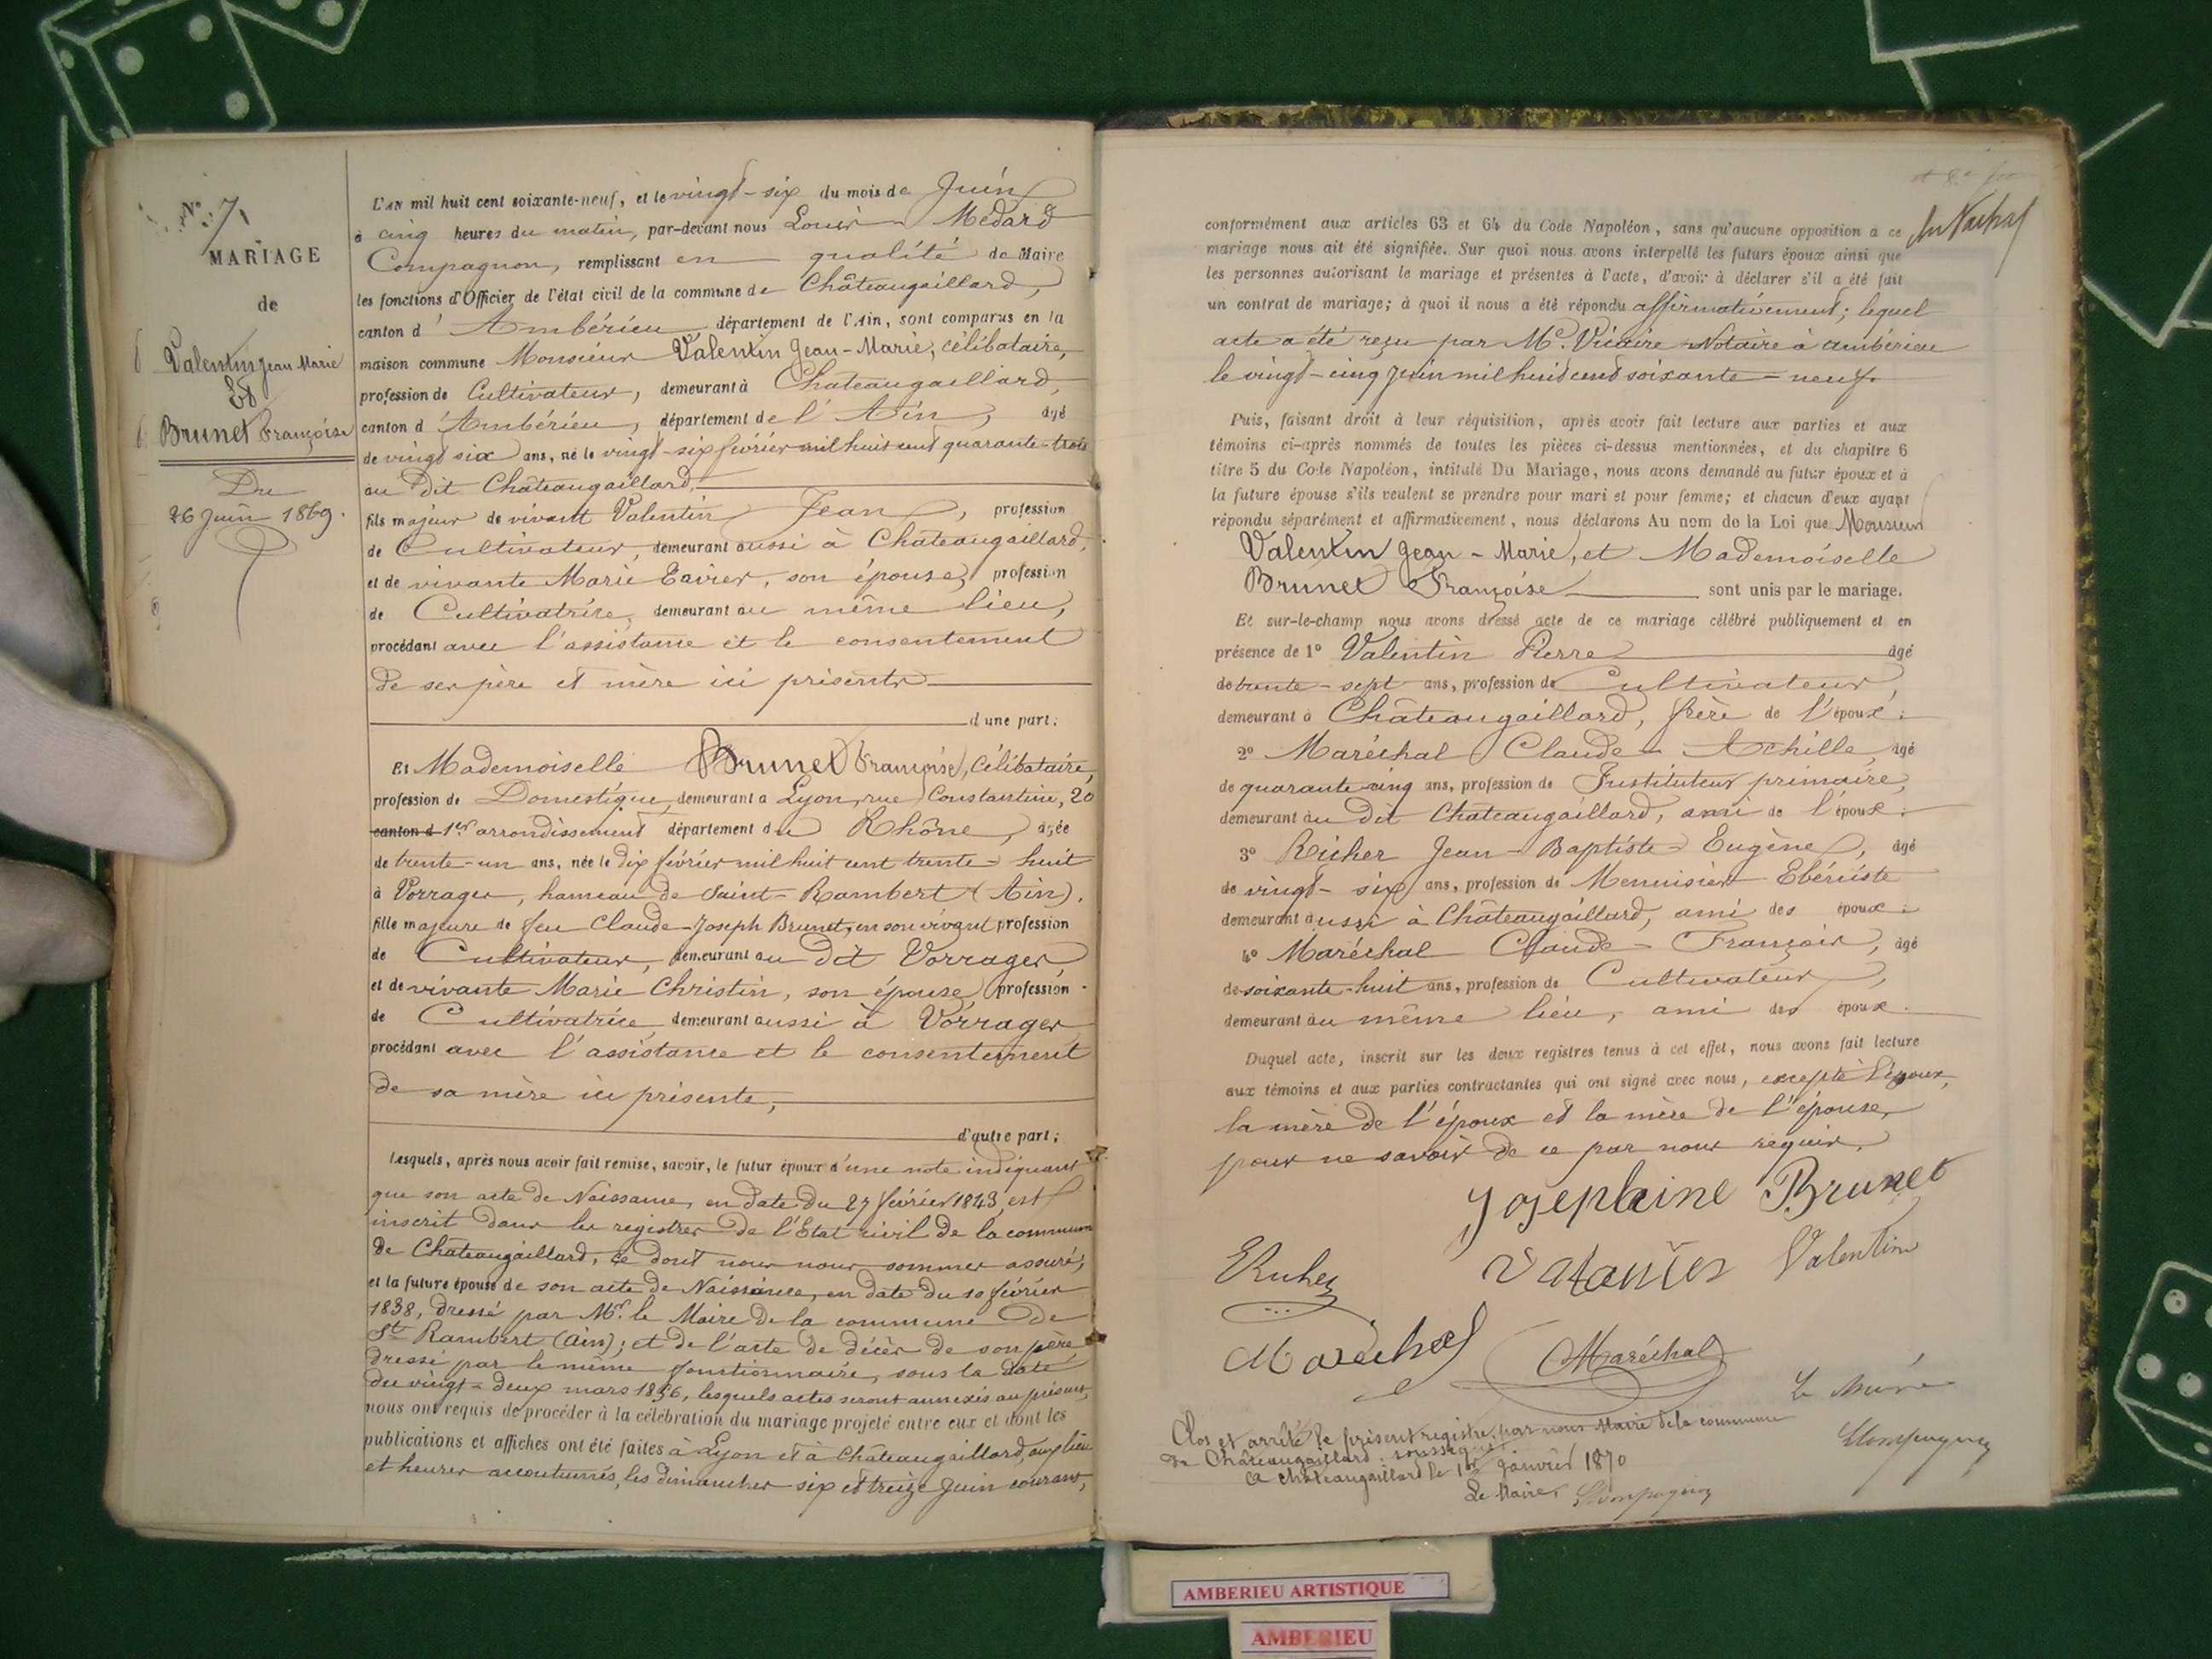 N.° 7.
MARIAGE
de
Valentin Jean Marie
Et
Brunet Françoise
Du
26 Juin 1869.
L'AN mil huit cent soixante-neuf, et le vingt-six du mois de Juin
à cinq heures du matin, par-devant nous Louis Médard
Compagnon, remplissant en qualité de Maire
les fonctions d'Officier de l'état civil de la commune de Châteaugaillard,
canton d'Ambérieu département de l'Ain, sont comparus en la
maison commune Monsieur Valentin Jean-Marie, célibataire,
profession de Cultivateur, demeurant à Chateaugaillard,
canton d'Ambérieu, département de l'Ain, âgé
de vingt six ans, né le vingt-six février mil huit cent quarante-trois
au dit Châteaugaillard,
fils majeur de vivant Valentin Jean, profession
de Cultivateur, demeurant aussi à Châteaugaillard,
et de vivante Marie, son épouse, profession
de Cultivatrice, demeurant au même lieu,
procédant avec l'assistance et le consentement
de ses père et mère ici présents
d'une part;
Et Mademoiselle Brunet Françoise, Célibataire,
profession de Domestique, demeurant à Lyon, rue Constantine, 20
canton d 1er arrondissement département du Rhône, âgée
de trente-un ans, née le dix février mil huit cent trente-huit
à Vorrages, hameau de Saint-Rambert (Ain).
fille majeure de feu Claude-Joseph Brunet, en son vivant profession
de Cultivateur, demeurant au dit Vorrages
et de vivante Marie Christin, son épouse, profession
de Cultivatrice demeurant aussi à Vorrages
procédant avec l'assistance et le consentement
de sa mère ici présente,
d'autre part;
Lesquels, après nous avoir fait remise, savoir, le futur époux d'une note indiquant
que son acte de Naissance, en date du 27 février 1843, est
inscrit dans les registres de l'Etat civil de la commune
de Châteaugaillard, ce dont nous nous sommes assuré,
et la future épouse de son acte de Naissance, en date du 10 février
1838, dressé par Mr. le Maire de la commune de
St Rambert (Ain); et de l'acte de décès de son père
dressé par le même fonctionnaire, sous la date
du vingt-deux mars, lesquels actes seront annexés au présent,
nous ont requis de procéder à la célébration du mariage projeté entre eux et dont les
publications et affiches ont été faites à Lyon et à Châteaugaillard, aux lieu
et heures accoutumés, les dimanches six et treize Juin courant,
conformément aux articles 63 et 64 du Code Napoléon, sans qu'aucune opposition à ce
mariage nous ait été signifiée. Sur quoi nous avons interpellé les futurs époux ainsi que
les personnes autorisant le mariage et présentes à l'acte, d'avoir à déclarer s'il a été fait
un contrat de mariage; à quoi il nous a été répondu affirmativement; lequel
acte a été reçu par Me. Vicaire Notaire à Ambérieu
le vingt-cinq Juin mil huit cent soixante-neuf.
Puis, faisant droit à leur réquisition, après avoir fait lecture aux parties et aux
témoins ci-après nommés de toutes les pièces ci-dessus mentionnées, et du chapitre 6
titre 5 du Code Napoléon, intitulé Du Mariage, nous avons demandé au futur époux et à
la future épouse s'ils veulent se prendre pour mari et pour femme; et chacun d'eux ayant
répondu séparément et affirmativement, nous déclarons Au nom de la Loi que Monsieur
Valentin Jean-Marie, et Mademoiselle
Brunet Françoise sont unis par le mariage.
Et sur-le-champ nous avons dressé acte de ce mariage célébré publiquement et en
présence de 1° Valentin Pierre âgé
de trente-sept ans, profession de Cultivateur,
demeurant à Châteaugaillard, frère de l'époux.
2° Maréchal Claude-Achille, âgé
de quarante cinq ans, profession de Instituteur primaire,
demeurant au dit Chateaugaillard, ami de l'époux.
3° Richer Jean-Baptiste-Eugène, âgé
de vingt-six ans, profession de Menuisier Ebéniste
demeurant aussi à Châteaugaillard, ami des époux.
4° Maréchal Claude-François, âgé
de soixante-huit ans, profession de Cultivateur,
demeurant au même lieu, ami des époux.
Duquel acte, inscrit sur les deux registres tenus à cet effet, nous avons fait lecture
aux témoins et aux parties contractantes qui ont signé avec nous, excepté l'époux,
la mère de l'époux et la mère de l'épouse,
pour ne savoir de ce par nous requis.
Josephine Brunet
Valentin
Marechal
Maréchal
Le Maire
Clos et arrêté le présent registre par nous Maire de la commune
de Châteaugaillard, soussigné
a châteaugaillard le 1er Janvier 1870
Le Maire
AMBERIEU ARTISTIQUE
AMBERIEU